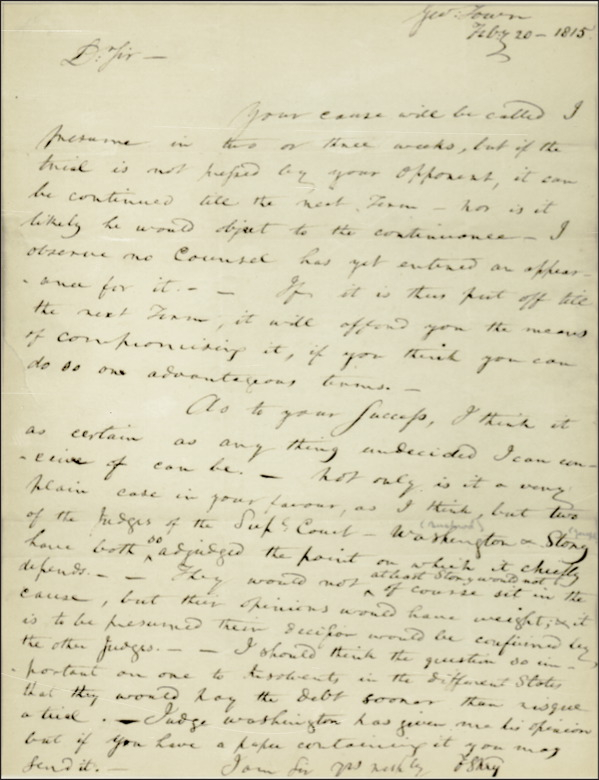 Geo: Town
Feby 20 - 1815.
Dr Sir —
Your cause will be called I
presume in two or three weeks, but if the
trial is not pressed by your Opponent, it can
be continued till the next Term — nor is it
likely he would object to the continuance — I
observe no Counsel has yet entered an appear-
-ance for it. — — If it is thus put off till
the next Term, it will afford you the means
of compromising it, if you think you can
do so on advantageous terms. —
As to your Success, I think it
as certain as any thing undecided I can con-
-ceive of can be. — Not only is it a very
plain case in your favour, as I think, but two
of the Judges of the Supe Court — Washington & Story
have both so adjudged the point on which it chiefly
depends. — — They would not at least Story would not of course sit in the
cause, but their opinions would have weight, & it
is to be presumed their decision would be confirmed by
the other Judges. — — I should think the question so im-
-portant an one to Insolvents in the different States
that they would pay the debt sooner than risque
a trial. — Judge Washington has given me his opinion
but if you have a paper containing it you may
send it. — I am Sir yrs